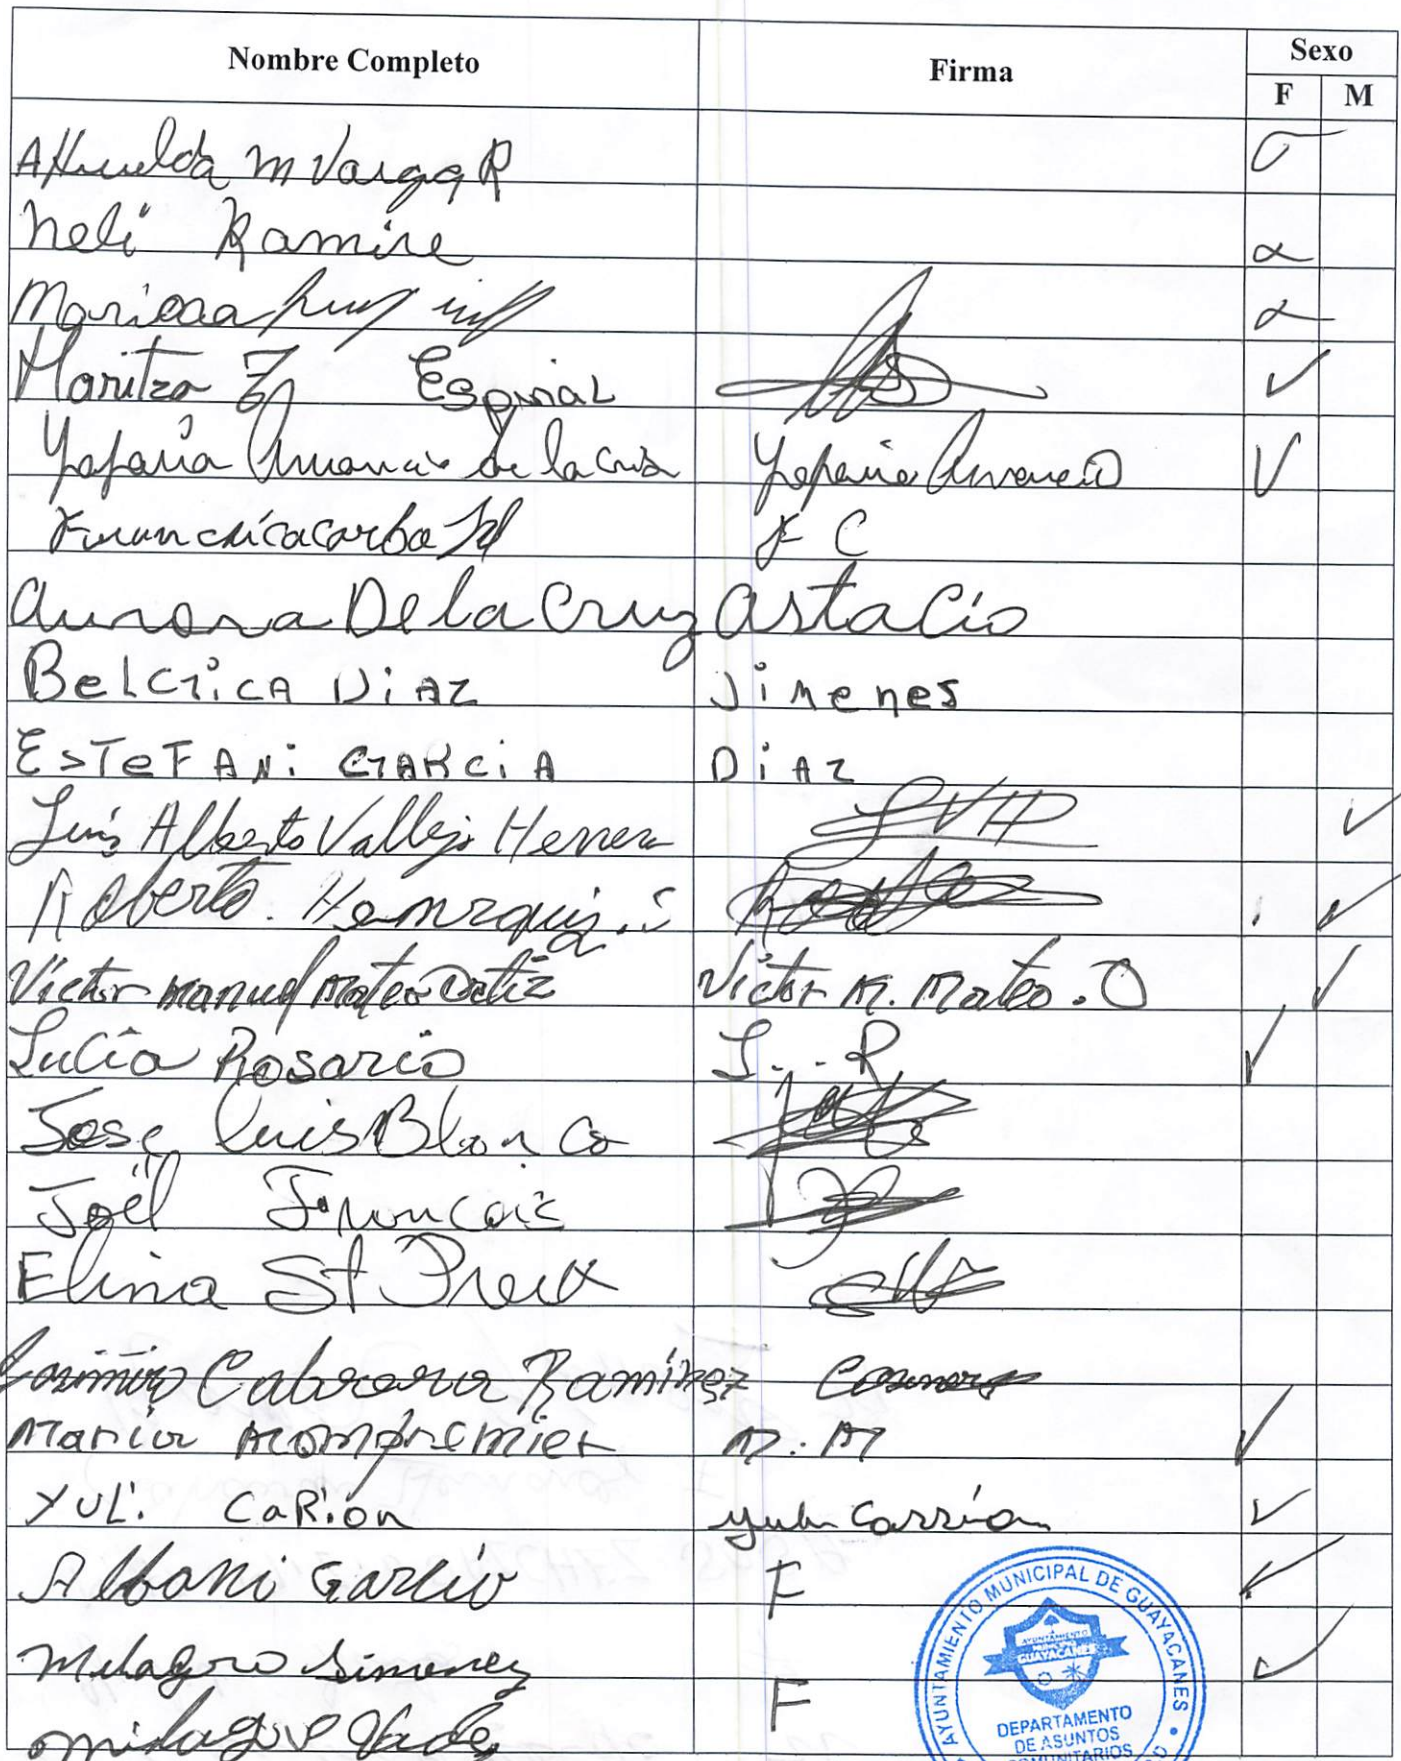 Nombre Completo Firma Sexo
F M
m Varga R
Neli Ramire
Maritza Espinal
de la Cruz
F C
Aurora De la Cruz Astacio
BelGicA DiAZ Jimenes
ESTeFANi GARCiA DiAZ
Luis Alberto Vallejo Herrera LVH
Roberto. Henrzquiz
Victor Manuel Mateo Ortiz Victor M. Mateo. O
Lucia Rosario L...R
Jose luis Blanco
Joël Francois
Elina St Preux
Casimiro Cabrera Ramírez
Maria Mompremier M. M
YULi CaRion yuli Carrion
Albani Garcia F
Milagro Simenez
F
AYUNTAMIENTO MUNICIPAL DE GUAYACANES
AYUNTAMIENTO
GUAYACANES
DEPARTAMENTO
DE ASUNTOS
COMUNITARIOS